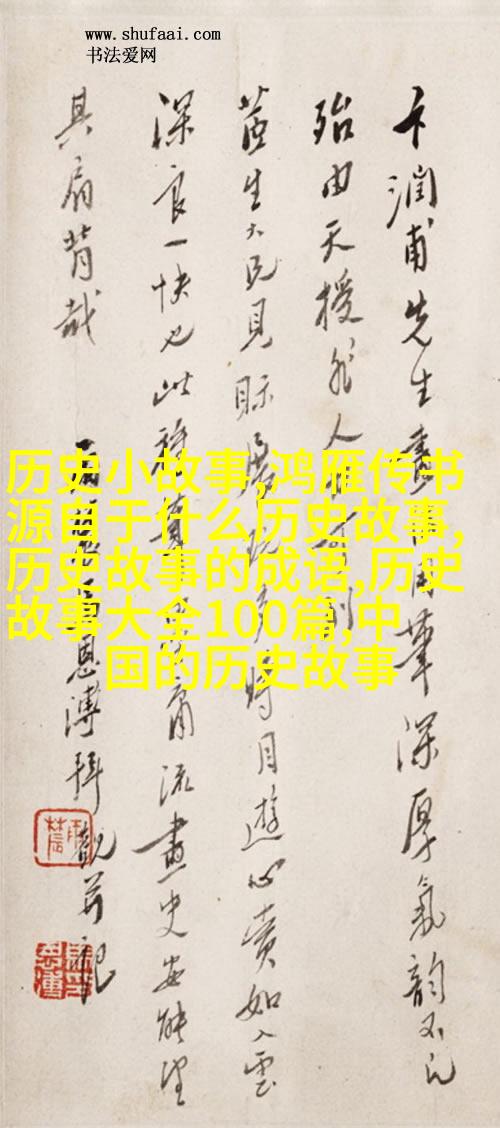 www.shufaai.com
书法爱网
卞潤甫先生畫用筆深厚氣韵不凡
殆由天授非人
生大兄見眎多時目遊心賞如入雲
深良一快也此庸流畫史安能望
其肩背哉
恩溥拜觀並記
历史小故事,鸿雁传书
源自于什么历史故事,
历史故事的成语,历史
故事大全100篇,中
国的历史故事